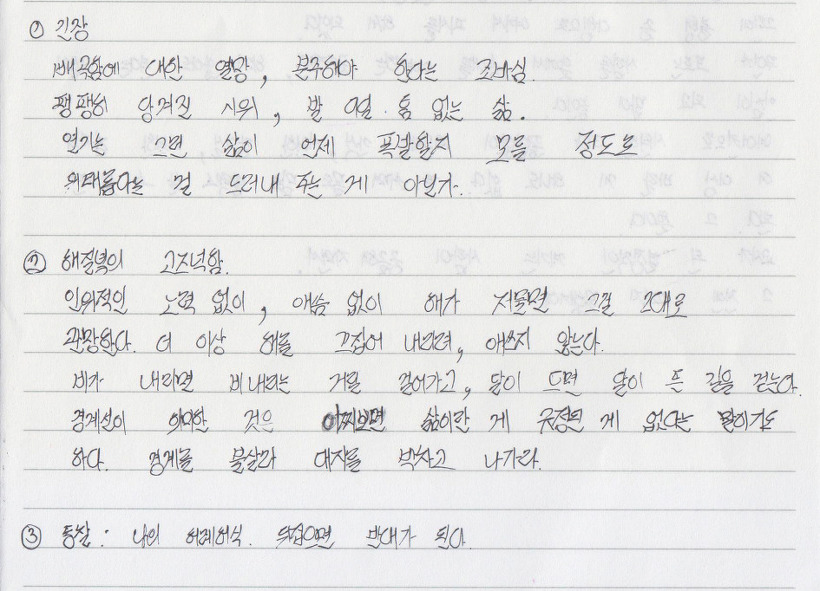 ① 긴장
배곡함에 대한 열망, 분주해야 한다는 조바심.
팽팽히 당겨질 시위, 발 여덟 틈 없는 삶.
열기는 그면 삶이 언제 폭발할지 모를 정도로
위태롭다는 걸 드러내 주는 게 아닐까.
② 해질녘의 고즈넉함.
인위적인 노력 없이, 애씀 없이 해가 저물면 그걸 그대로
관망한다. 더 이상 해를 끄집어 내리려, 애쓰지 않는다.
비가 내리면 비내리는 거릴 걸어가고, 달이 뜨면 달이 뜬 길을 걷는다.
경계선이 희미한 것은 어찌보면 삶이란 게 규정된 게 없다는 말이기도
하다. 경계를 불살라 대지를 박차고 나가라.
③ 통찰 : 나의 허례허식. 뒤집으면 반대가 된다.